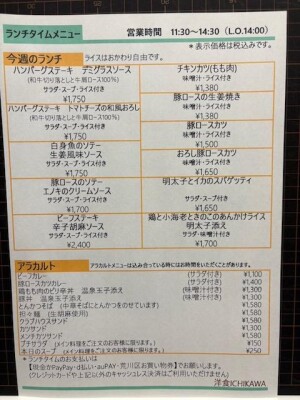 ランチタイムメニュー
営業時間 11:30~14:30 (L.O.14:00)
*表示価格は税込みです。
今週のランチ ライスはおかわり自由です。
ハンバーグステーキ デミグラスソース
(和牛切り落としと牛肩ロース100%)
サラダ・スープ・ライス付き
¥1,750
ハンバーグステーキ トマトチーズの和風おろし
(和牛切り落としと牛肩ロース100%)
サラダ・スープ・ライス付き
¥1,750
白身魚のソテー
生姜風味ソース
サラダ・スープ・ライス付き
¥1,750
豚ロースのソテー
エノキのクリームソース
サラダ・スープ・ライス付き
¥1,700
ビーフステーキ
辛子胡麻ソース
サラダ・スープ・ライス付き
¥2,400
チキンカツ(もも肉)
味噌汁・ライス付き
¥1,380
豚ロースの生姜焼き
味噌汁・ライス付き
¥1,380
豚ロースカツ
味噌汁・ライス付き
¥1,500
おろし豚ロースカツ
味噌汁・ライス付き
¥1,580
明太子とイカのスパゲッティ
サラダ・スープ付き
¥1,650
鶏と小海老ときのこのあんかけライス
明太子添え
サラダ・味噌汁付き
¥1,700
アラカルト アラカルトメニューは込み合っている時にはお時間をいただくことがあります。
ビーフカレー (サラダ付き) ¥1,100
豚ロースカツカレー (サラダ付き) ¥1,400
鶏もも肉のひつ辛丼 温泉玉子添え (味噌汁付き) ¥1,300
豚丼 温泉玉子添え (味噌汁付き) ¥1,300
とんかつそば (中華そばにとんかつをのせています) ¥1,580
担々麺 (生胡麻使用) ¥1,300
クラブハウスサンド ¥1,580
カツサンド
メンチカツサンド
プチサラダ (メイン料理をご注文のお客様に限ります) ¥150
本日のスープ (メイン料理をご注文のお客様に限ります) ¥250
*ランチタイムのお支払いは
【現金かPayPay・d払い・auPAY・荒川区お買い物券】でお願いします。
(クレジットカードや上記以外のキャッシュレス決済はご利用いただけません)
洋食ICHIKAWA